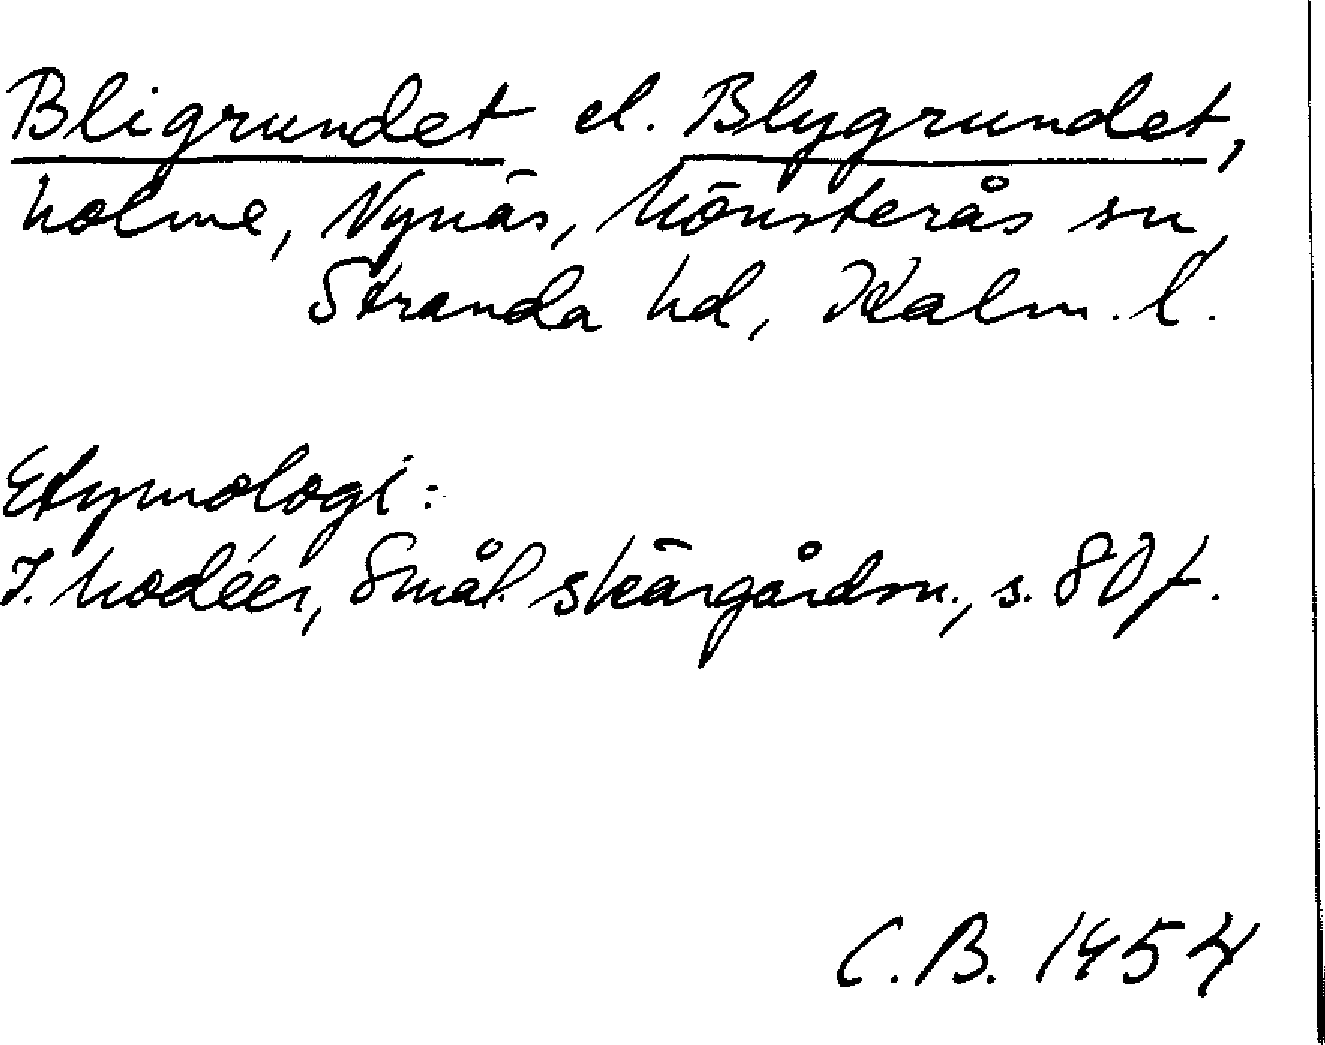 Bligrundet el. Blygrundet,
holme, Nynäs, Mönsterås sn,
Stranda hd, Kalm. l.
Etymologi:
I. Modéer, Smål. skärgårdsn., s. 80 f.
C. B. 1954